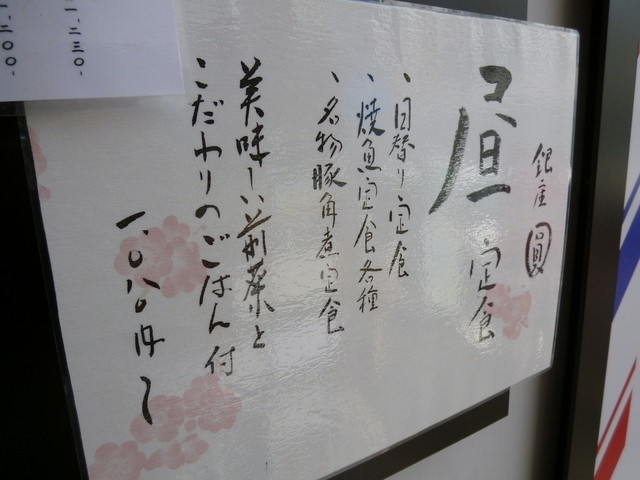 銀座 圓
昼 定食
、日替り定食
、焼魚定食各種
、名物豚角煮定食
美味しい前菜と
こだわりのごはん付
一、〇八〇円〜
一、二三〇-
一、二〇〇-